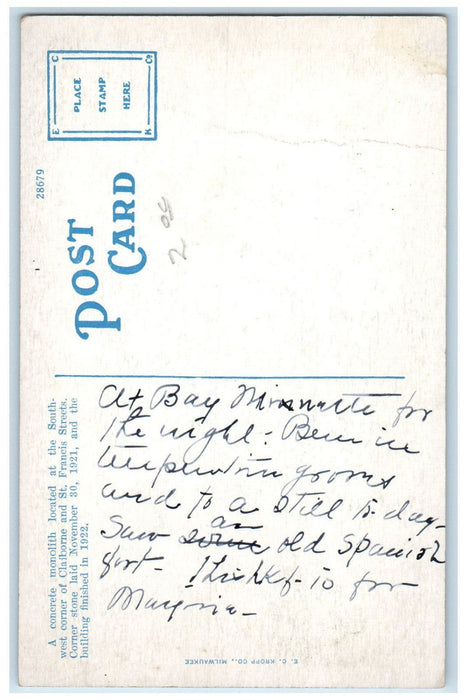 PLACE
STAMP
HERE
E C
K Co
28679
POST
CARD
2 00
A concrete monolith located at the South-
west corner of Claiborne and St. Francis Streets.
Corner stone laid November 30, 1921, and the
building finished in 1922.
At Bay Minnette for
the night - Been in
turpentine groves
and to a still to-day-
Saw an old Spanish
fort - This to for
E. C. KROPP CO., MILWAUKEE